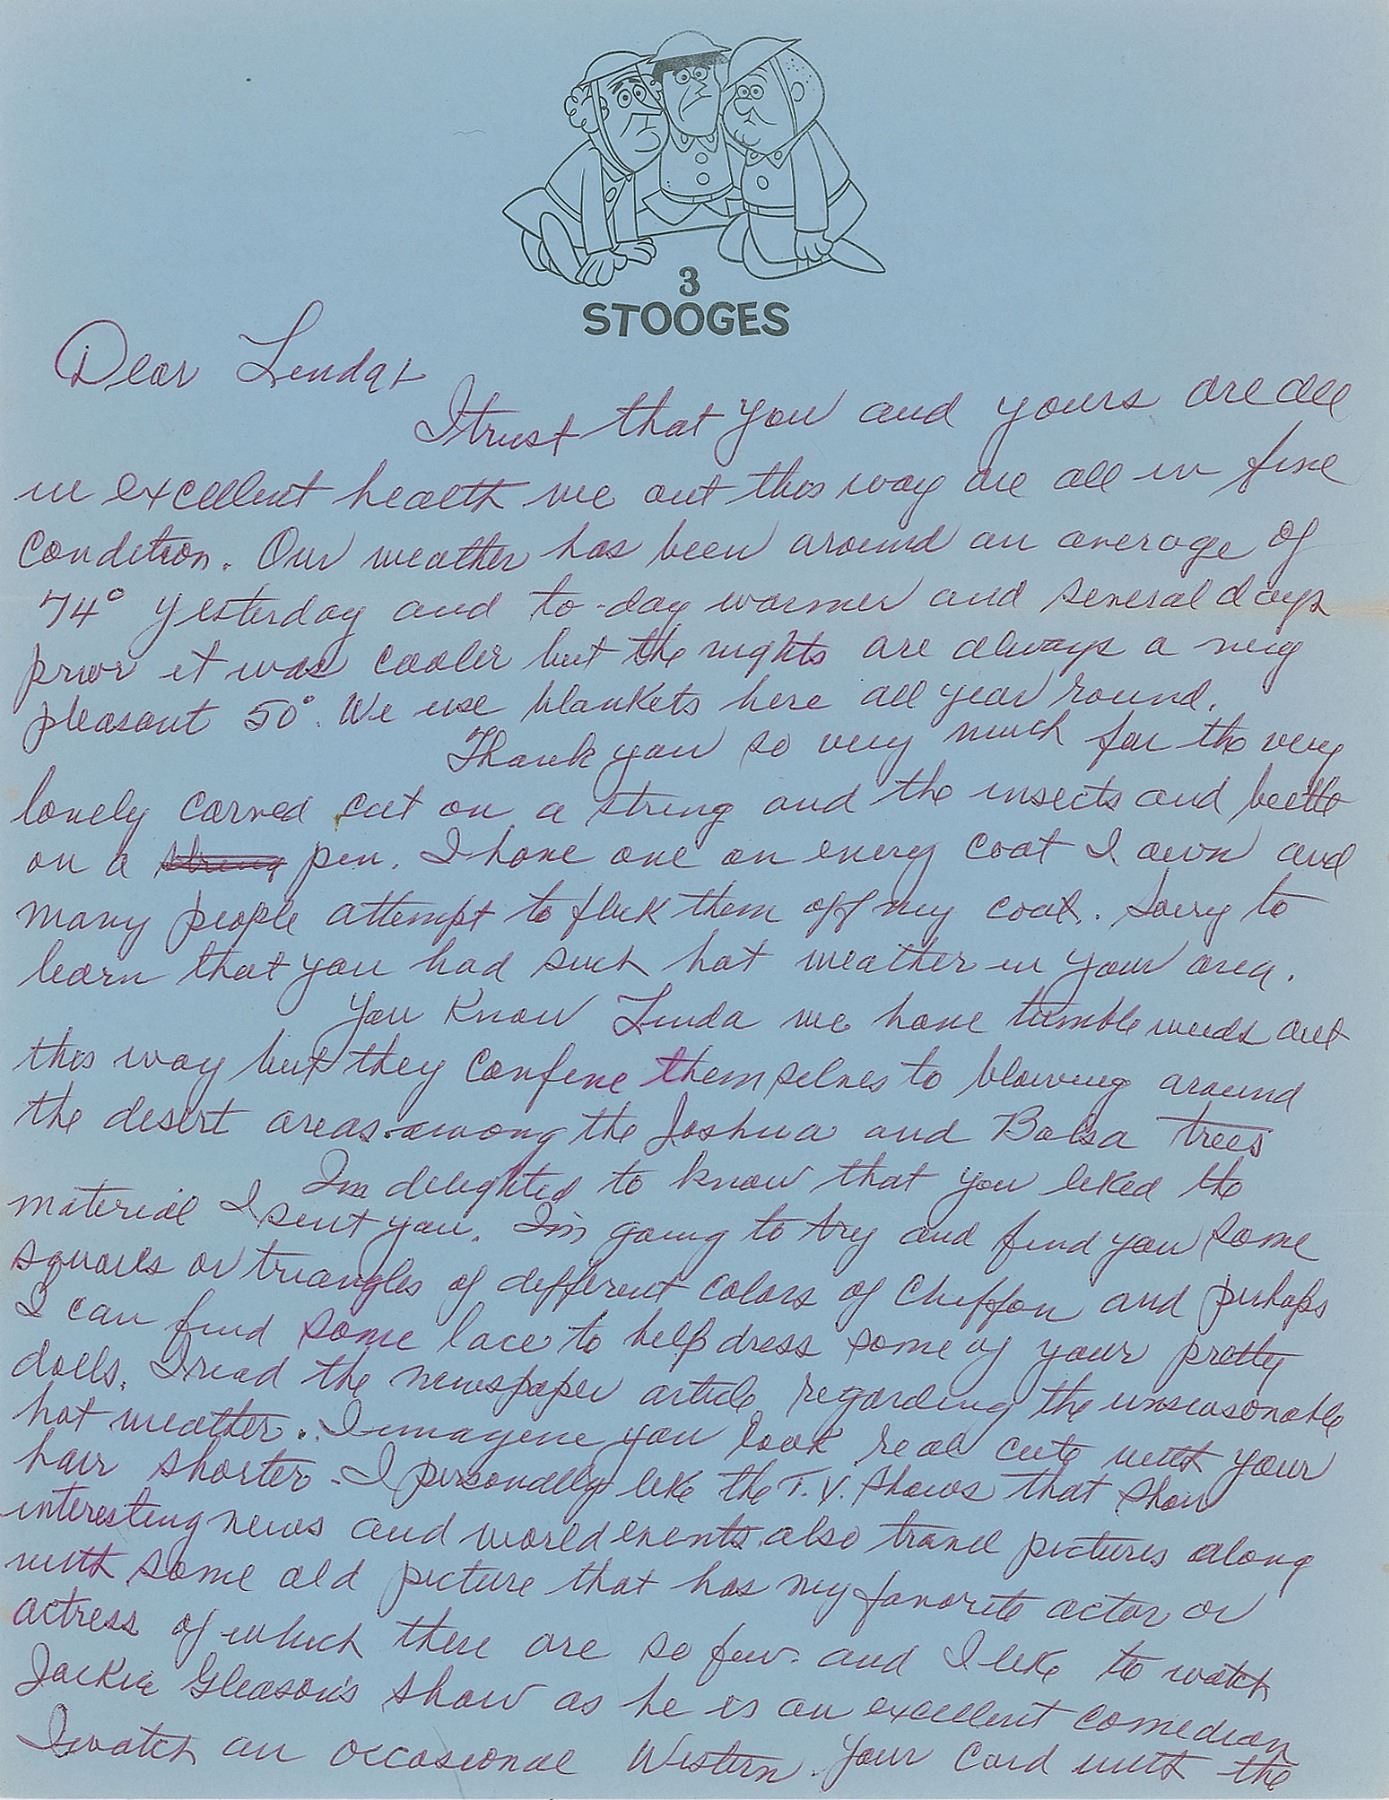 3
STOOGES
Dear Linda:
I trust that you and yours are all
in excellent health we out this way are all in fine
condition. Our weather has been around an average of
74° yesterday and to-day warmer and several days
prior it was cooler but the nights are always a
pleasant 50°. We use blankets here all year round.
Thank you so very much for the very
lovely carved cat on a string and the insects and beetle
on a string pin. I have one on every coat I own and
many people attempt to flick them off my coat. Sorry to
learn that you had such hot weather in your area.
You know Linda we have tumble weeds out
this way but they confine themselves to blowing around
the desert areas among the Joshua and Balsa trees
I'm delighted to know that you liked the
material I sent you. I'm going to try and find you some
squares or triangles of different colors of Chiffon and perhaps
I can find some lace to help dress some of your pretty
dolls. I read the newspaper article regarding the unseasonable
hot weather. I imagine you look real cute with your
hair shorter. I personally like the T.V. shows that show
interesting news and world events also travel pictures along
with some old picture that has my favorite actor or
actress of which there are so few. and I like to watch
Jackie Gleason's show as he is an excellent comedian
I watch an occasional Western. Your card with the